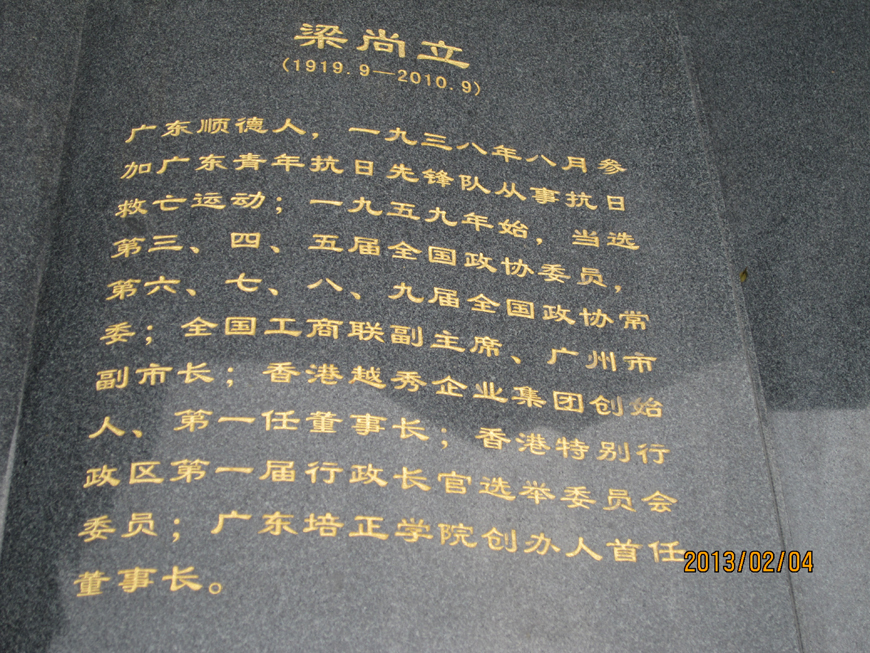 梁尚立
(1919.9—2010.9)
广东顺德人，一九三八年八月参
加广东青年抗日先锋队从事抗日
救亡运动；一九五九年始，当选
第三、四、五届全国政协委员，
第六、七、八、九届全国政协常
委；全国工商联副主席、广州市
副市长；香港越秀企业集团创始
人、第一任董事长；香港特别行
政区第一届行政长官选举委员会
委员；广东培正学院创办人首任
董事长。
2013/02/04